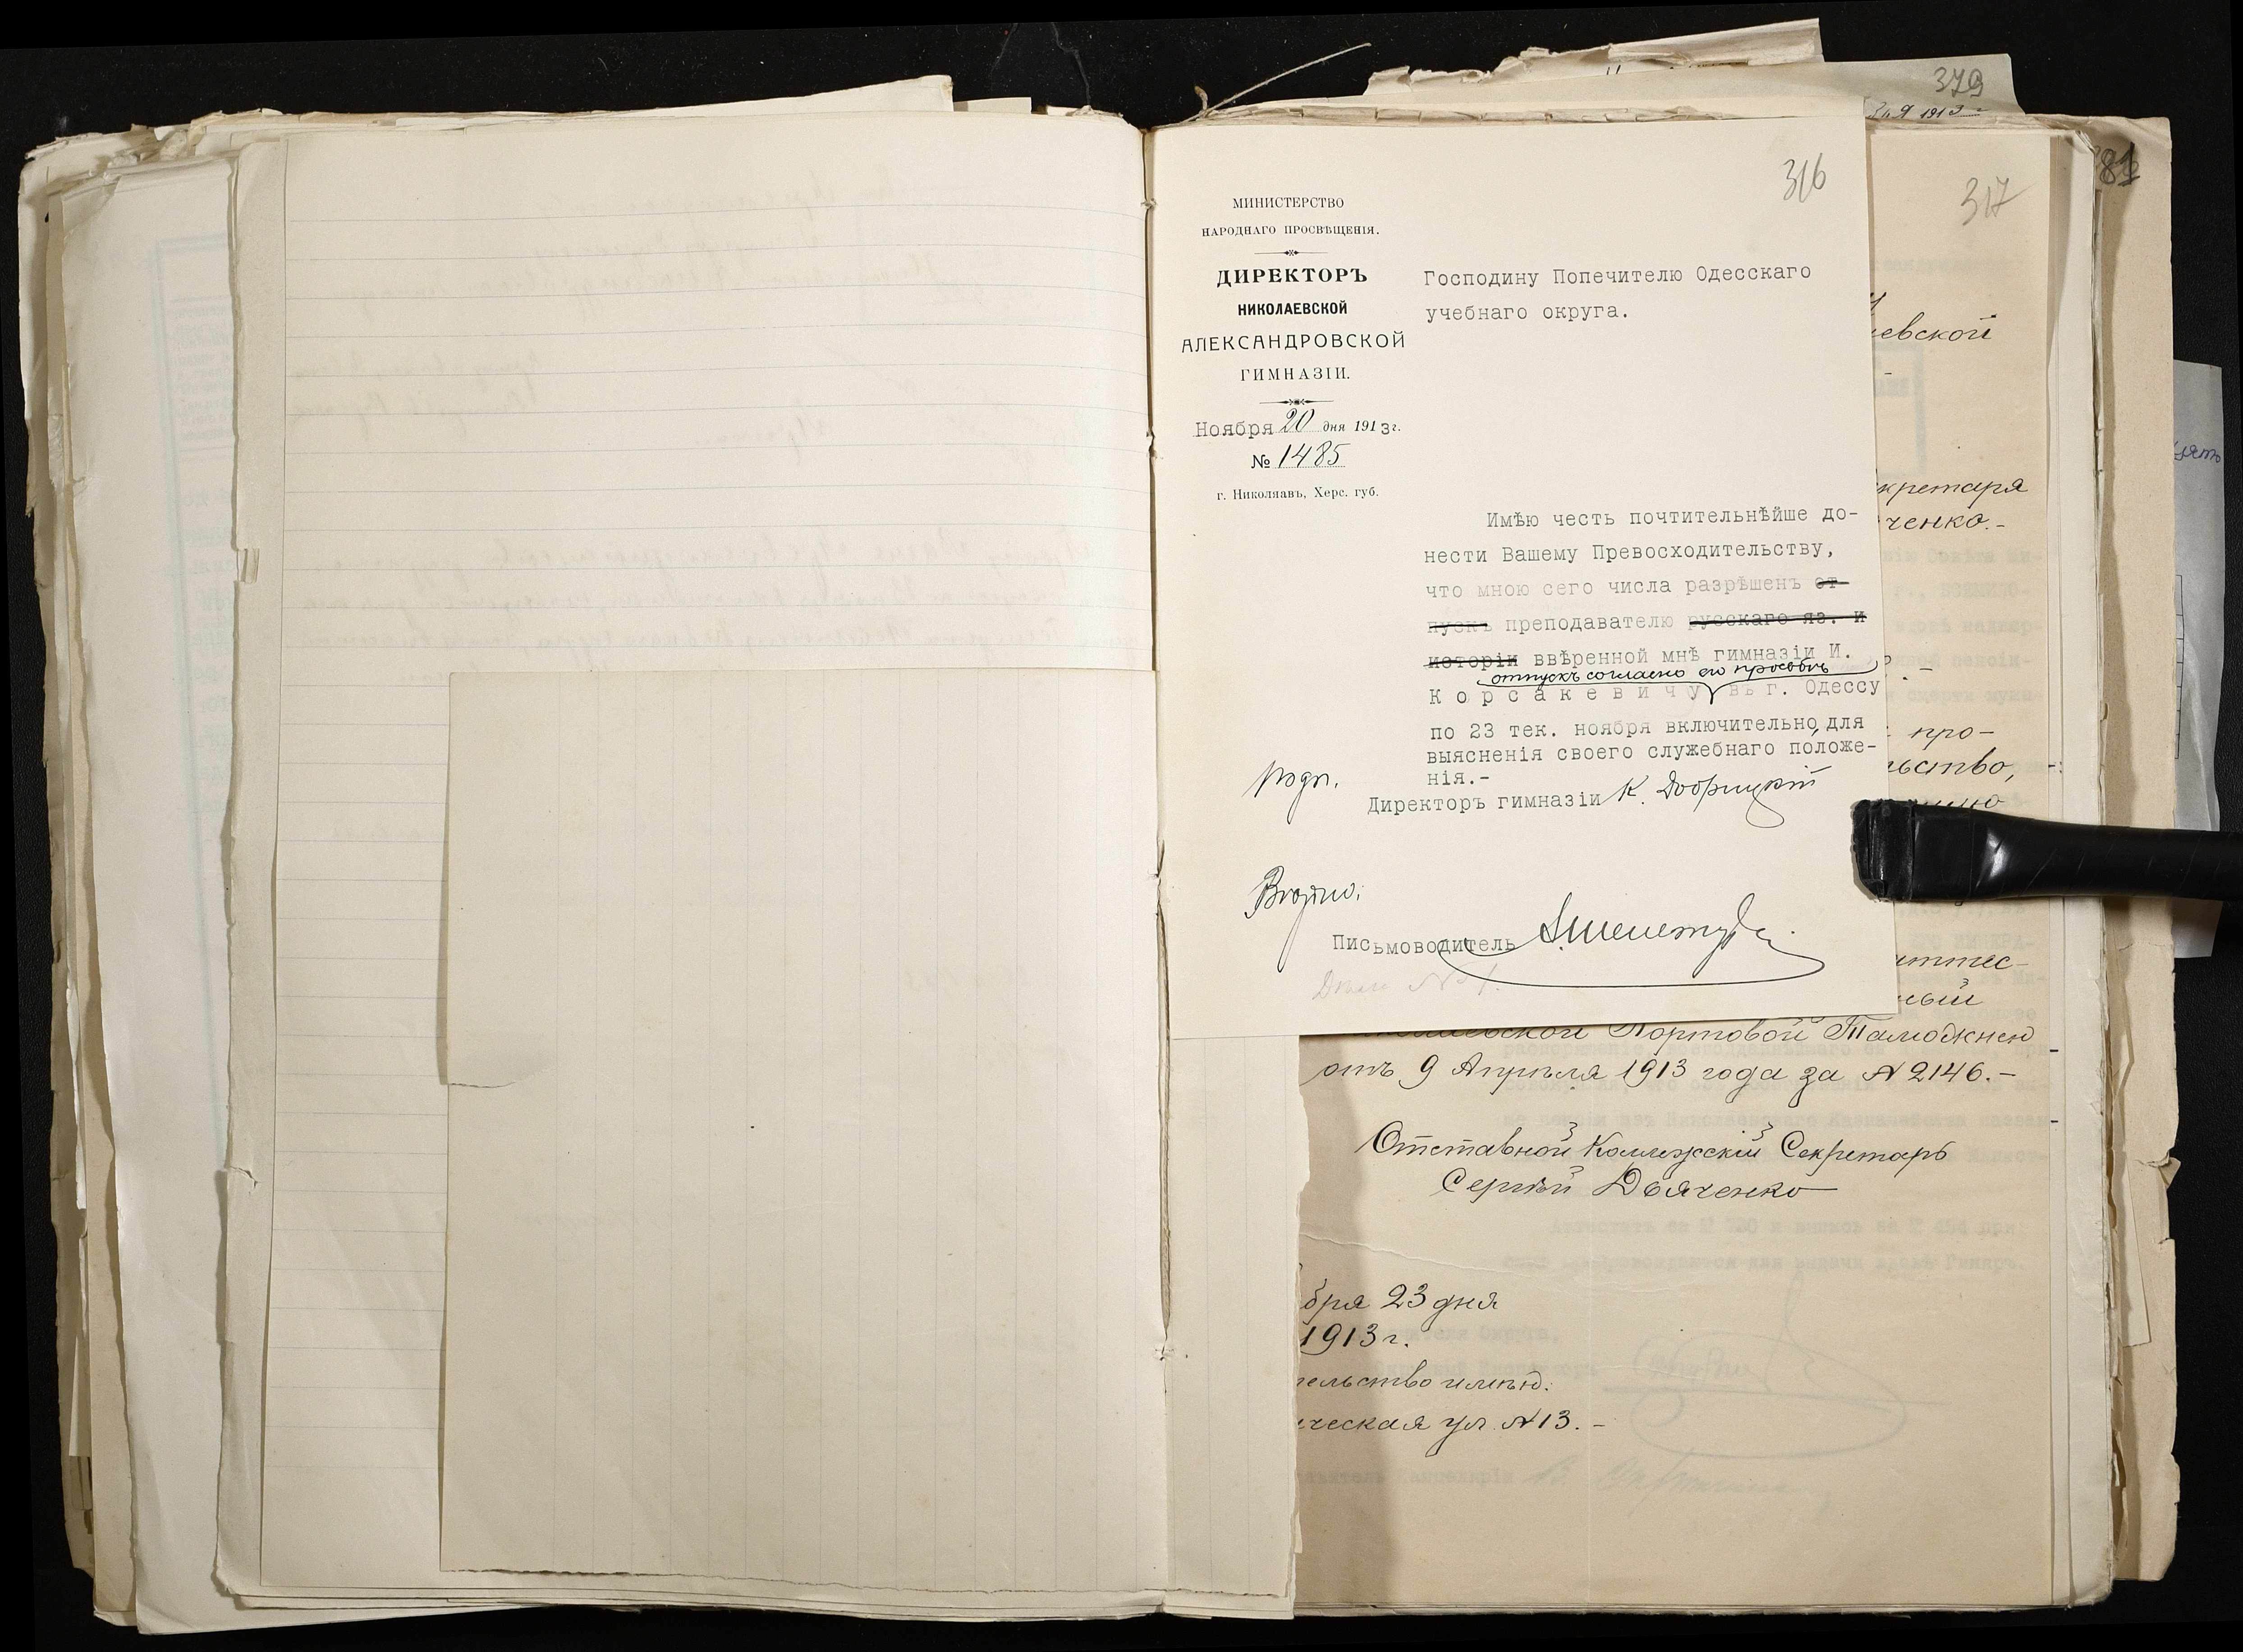 379
1913 г
381
316
317
МИНИСТЕРСТВО
НАРОДНАГО ПРОСВѢЩЕНІЯ.
ДИРЕКТОРЪ
НИКОЛАЕВСКОЙ
АЛЕКСАНДРОВСКОЙ
ГИМНАЗІИ.
Ноября 20 дня 1913 г.
№ 1485
г. Николаевъ, Херс. губ.
Господину Попечителю Одесскаго
учебнаго округа.
Имѣю честь почтительнѣйше до-
нести Вашему Превосходительству,
что мною сего числа разрѣшенъ от-
пускъ преподавателю русскаго яз. и
исторіи ввѣренной мнѣ гимназіи И.
отпускъ согласно его просьбѣ
Корсакевичу въ г. Одессу
по 23 тек. ноября включительно, для
выясненія своего служебнаго положе-
нія.-
подп.
Директоръ гимназіи К. Добрицкій
Вѣрно:
Письмоводитель
Дѣло № 1.
евской
кретаря
ченко.-
про-
льство,
аттес-
ный
Портовой Таможней
отъ 9 Апрѣля 1913 года за № 2146.-
Отставной Коллежскій Секретарь
Сергѣй Дьяченко
бря 23 дня
1913 г.
тельство имѣю:
ическая ул. № 13.-